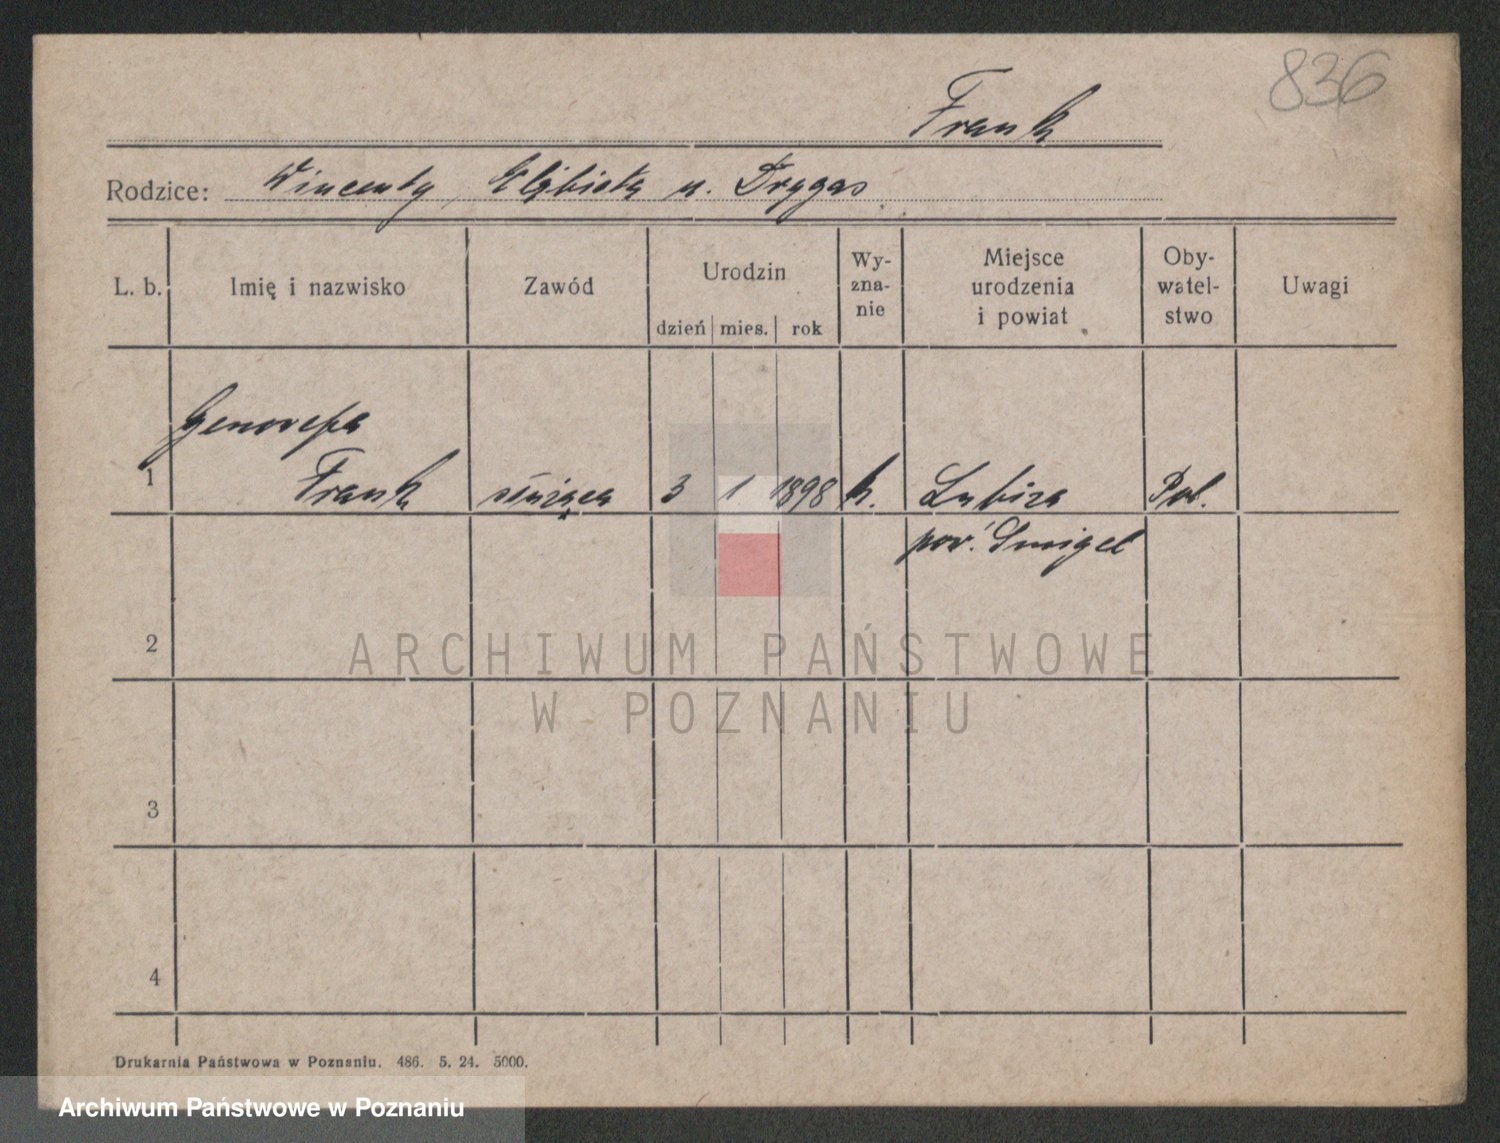 836
Frank
Rodzice: Wincenty, Elżbieta u. Drygas
L. b. Imię i nazwisko Zawód Urodzin dzień mies. rok Wy-zna-nie Miejsce urodzenia i powiat Oby-watel-stwo Uwagi
Genowefa
1 Frank służąca 3 1 1898 k. Lubiza Pol.
pow. Smigel
2
ARCHIWUM PAŃSTWOWE
W POZNANIU
3
4
Drukarnia Państwowa w Poznaniu. 486. 5. 24. 5000.
Archiwum Państwowe w Poznaniu